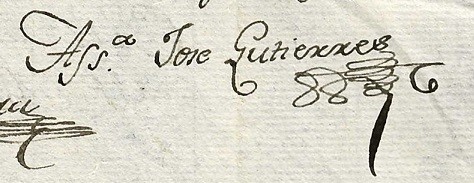 Ass.ª Jose Gutierres